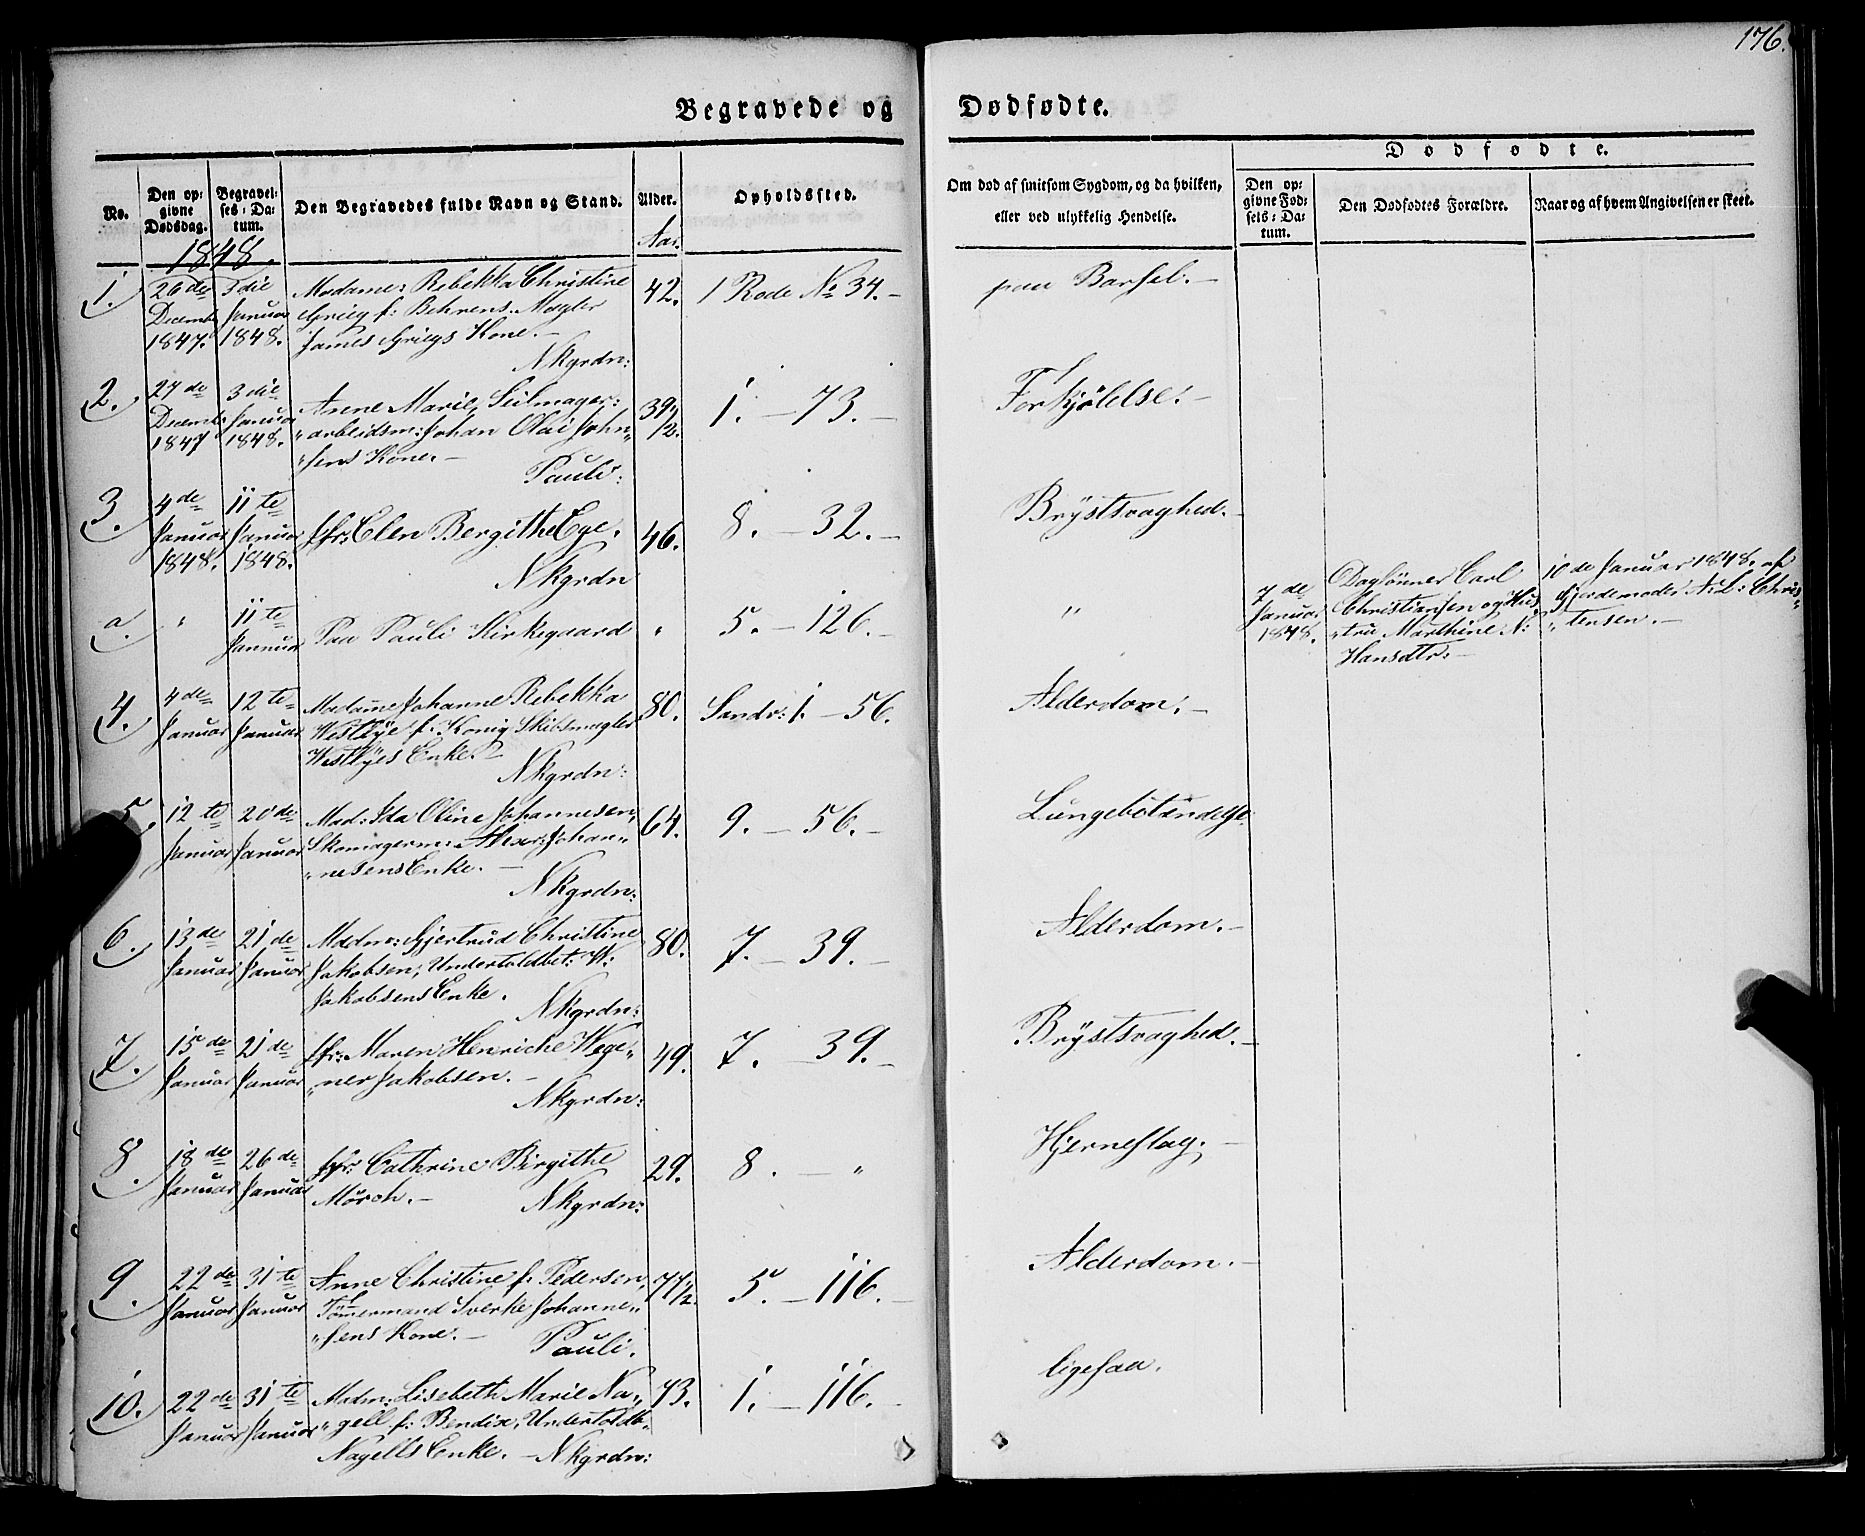 176.
Begravede og Dødfødte.
No.
Den op-
givne
Dødsdag.
Begravel-
ses-Da-
tum.
Den Begravedes fulde Navn og Stand.
Alder.
Opholdssted.
Om død af smitsom Sygdom, og da hvilken,
eller ved ulykkelig Hendelse.
Dødfødte.
Den op-
givne Fød-
sels-Da-
tum.
Den Dødfødtes Forældre.
Naar og af hvem Angivelsen er skeet.
1848.
Aar.
1. 26de Decemb 1847. 3die Januar 1848.
Madame: Rebekka Christine
Grieg f: Behrens. Mægler
James Griegs Kone.—
Nkgrdn:
42. 1 Rode No 34.— paa Barsel.—
2. 27de Decemb: 1847 3die Januar 1848.
Anne Marie, Seilmager-
"arbeidsm: Johan Olai John"
"sens Kone.—
Pauli:
39 1/2. 1.—73.— Forkjølelse.—
3. 4de Januar 1848. 11te Januar 1848.
Jfr: Elen Bergithe Ege.
Nkgrdn
46. 8.—32.— Brystsvaghed.—
a. " 11te Januar
Paa Pauli Kirkegaard
" 5.—126.— "
7de Januar 1848.
Daglønner Carl
Christiansen og Hus"
"tru Marthine N:
Hansdtr:—
10de Januar 1848. af
Gjordemoder A: L: Chris"
"tensen.—
4. 4de Januar 12te Januar
Madame Johanne Rebekka
Westlye f. Konig Skibsmægler
Westlyes Enke.—
Nkgrdn:
80. Sandv: 1.—56. Alderdom.—
5. 12te Januar 20de Januar
Mad: Ida Oline Johannesen,
Skomagerm: Alexr: Johan"
"nesens Enke.—
Nkgrdn:
64. 9.—56.— Lungebetændelse.
6. 13de Januar 21de Januar
Madme: Gjertrud Christine
Jakobsen, Undertoldbet: W:
Jakobsens Enke.
Nkgrdn:
80. 7.—39.— Alderdom.—
7. 15de Januar 21de Januar
Jfr: Maren Henriche Wege"
"ner Jakobsen.—
Nkgrdn:
49. 7.—39.— Brystsvaghed.—
8. 18de Januar 26de Januar
Jfr: Cathrine Birgithe
Mørch.—
Nkgrdn:
29. 8.—" Hjerneslag.—
9. 22de Januar 31te Januar
Anne Christine f. Pedersen,
Tømmermand Sverke Johanne"
"sens Kone.—
Pauli.
77 1/2. 5.—116.— Alderdom.—
10. 22de Januar 31te Januar
Madm: Lisebeth Marie Na"
"gell f: Bendix, Undertoldb"
Nagells Enke.— Nkgrdn:
73. 1.—116.— ligesaa.